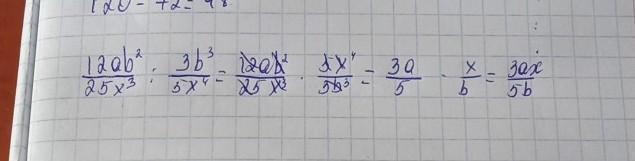 120 - 72 = 48
12ab²/25x³ : 3b³/5x⁴ = 12ab²/25x³ · 5x⁴/3b³ = 3a/5 · x/b = 3ax/5b